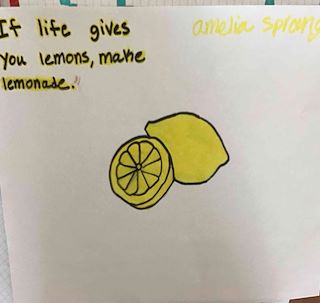 If life gives
you lemons, make
lemonade."
amelia